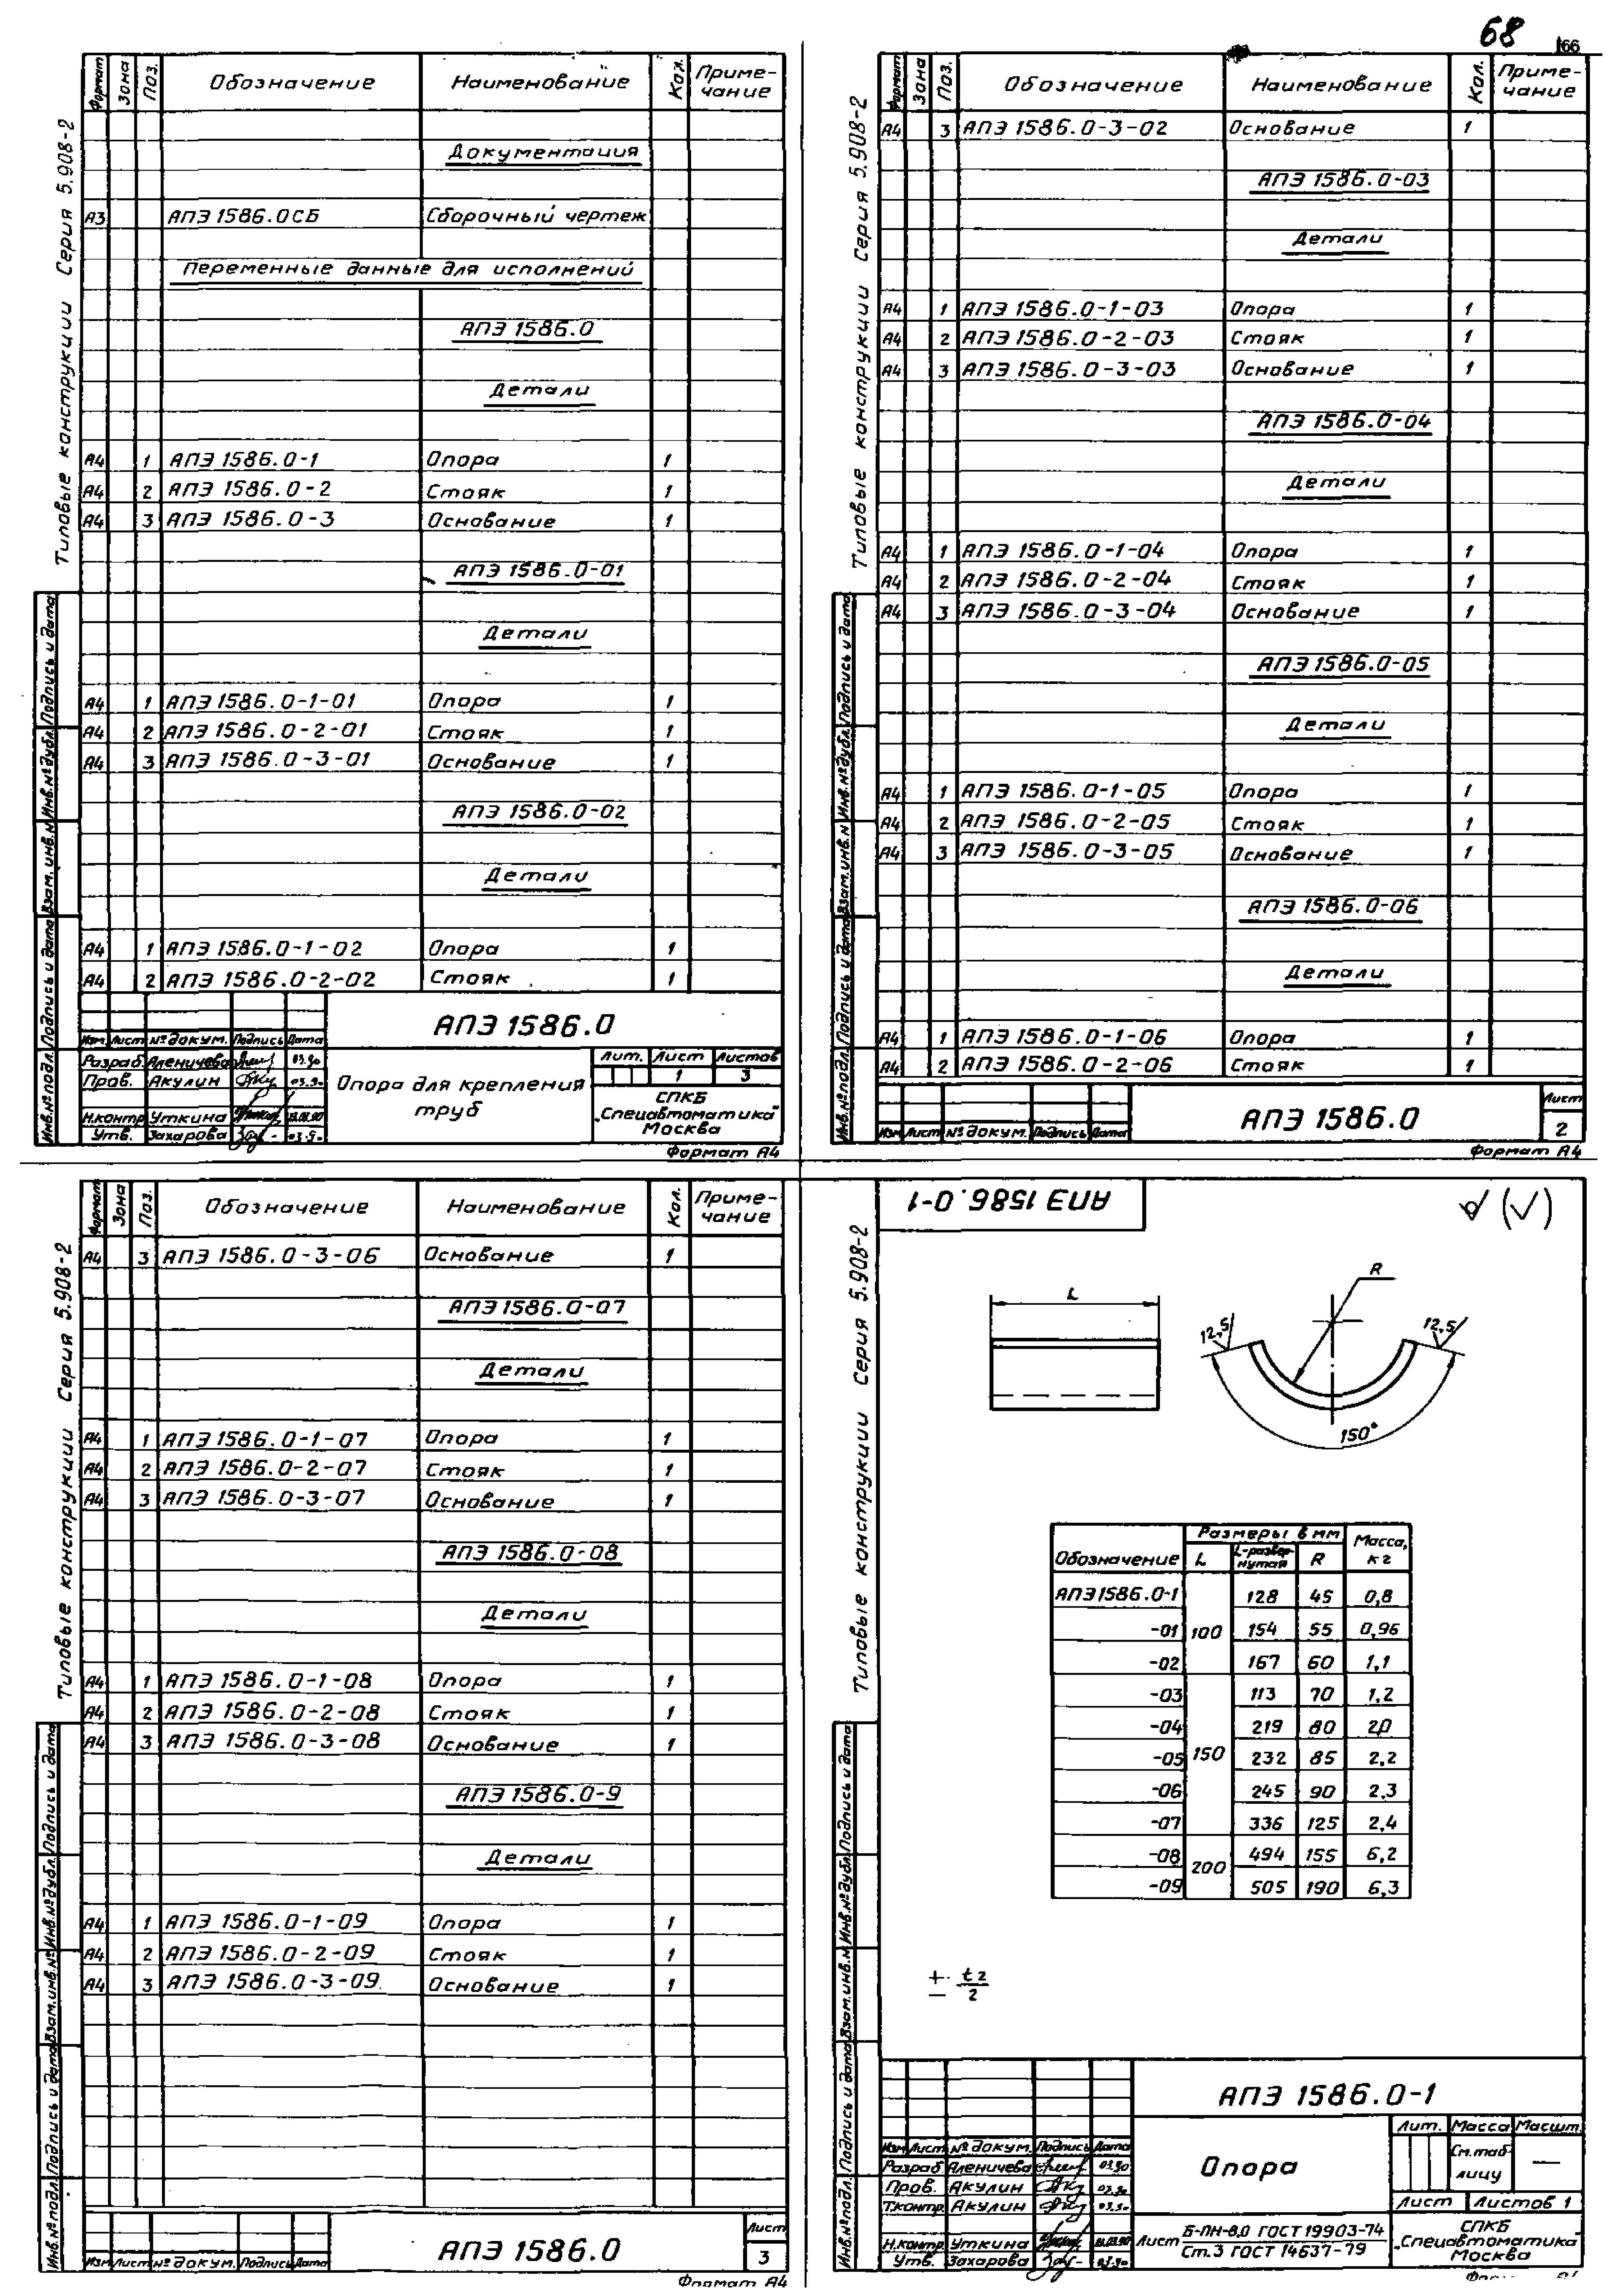 68 166
Типовые конструкции Серия 5.908-2
Формат Зона Поз. Обозначение Наименование Кол. Приме-чание
Документация
А3 АПЭ 1586.0СБ Сборочный чертеж
Переменные данные для исполнений
АПЭ 1586.0
Детали
А4 1 АПЭ 1586.0-1 Опора 1
А4 2 АПЭ 1586.0-2 Стояк 1
А4 3 АПЭ 1586.0-3 Основание 1
АПЭ 1586.0-01
Детали
А4 1 АПЭ 1586.0-1-01 Опора 1
А4 2 АПЭ 1586.0-2-01 Стояк 1
А4 3 АПЭ 1586.0-3-01 Основание 1
АПЭ 1586.0-02
Детали
А4 1 АПЭ 1586.0-1-02 Опора 1
А4 2 АПЭ 1586.0-2-02 Стояк 1
Инв.№подл. Подпись и дата Взам.инв.№ Инв.№дубл. Подпись и дата
АПЭ 1586.0
Изм. Лист №докум. Подпись Дата
Разраб. Аленичева 03.90
Пров. Акулин 03.90
Н.контр. Уткина
Утв. Захарова
Опора для крепления
труб
Лит. Лист Листов
1 3
СПКБ
„Спецавтоматика"
Москва
Формат А4
Типовые конструкции Серия 5.908-2
Формат Зона Поз. Обозначение Наименование Кол. Приме-чание
А4 3 АПЭ 1586.0-3-02 Основание 1
АПЭ 1586.0-03
Детали
А4 1 АПЭ 1586.0-1-03 Опора 1
А4 2 АПЭ 1586.0-2-03 Стояк 1
А4 3 АПЭ 1586.0-3-03 Основание 1
АПЭ 1586.0-04
Детали
А4 1 АПЭ 1586.0-1-04 Опора 1
А4 2 АПЭ 1586.0-2-04 Стояк 1
А4 3 АПЭ 1586.0-3-04 Основание 1
АПЭ 1586.0-05
Детали
А4 1 АПЭ 1586.0-1-05 Опора 1
А4 2 АПЭ 1586.0-2-05 Стояк 1
А4 3 АПЭ 1586.0-3-05 Основание 1
АПЭ 1586.0-06
Детали
А4 1 АПЭ 1586.0-1-06 Опора 1
А4 2 АПЭ 1586.0-2-06 Стояк 1
Инв.№подл. Подпись и дата Взам.инв.№ Инв.№дубл. Подпись и дата
Изм Лист №докум. Подпись Дата
АПЭ 1586.0
Лист
2
Формат А4
Типовые конструкции Серия 5.908-2
Формат Зона Поз. Обозначение Наименование Кол. Приме-чание
А4 3 АПЭ 1586.0-3-06 Основание 1
АПЭ 1586.0-07
Детали
А4 1 АПЭ 1586.0-1-07 Опора 1
А4 2 АПЭ 1586.0-2-07 Стояк 1
А4 3 АПЭ 1586.0-3-07 Основание 1
АПЭ 1586.0-08
Детали
А4 1 АПЭ 1586.0-1-08 Опора 1
А4 2 АПЭ 1586.0-2-08 Стояк 1
А4 3 АПЭ 1586.0-3-08 Основание 1
АПЭ 1586.0-9
Детали
А4 1 АПЭ 1586.0-1-09 Опора 1
А4 2 АПЭ 1586.0-2-09 Стояк 1
А4 3 АПЭ 1586.0-3-09 Основание 1
Инв.№подл. Подпись и дата Взам.инв.№ Инв.№дубл. Подпись и дата
Изм Лист №докум. Подпись Дата
АПЭ 1586.0
Лист
3
Формат А4
Типовые конструкции Серия 5.908-2
АПЭ 1586.0-1
L
R
12,5 12,5
150°
Обозначение Размеры в мм Масса, кг
L L-развер-нутая R
АПЭ1586.0-1 100 128 45 0,8
-01 154 55 0,96
-02 167 60 1,1
-03 150 113 70 1,2
-04 219 80 2,0
-05 232 85 2,2
-06 245 90 2,3
-07 336 125 2,4
-08 200 494 155 6,2
-09 505 190 6,3
± t2/2
Инв.№подл. Подпись и дата Взам.инв.№ Инв.№дубл. Подпись и дата
АПЭ 1586.0-1
Изм Лист №докум. Подпись Дата
Разраб Аленичева 03.90
Пров. Акулин 03.90
Т.контр. Акулин 03.90
Н.контр. Уткина
Утв. Захарова 03.90
Опора
Лит. Масса Масшт.
См.таб-лицу —
Лист Листов 1
Лист Б-ПН-8,0 ГОСТ 19903-74
Ст.3 ГОСТ 14637-79
СПКБ
„Спецавтоматика"
Москва